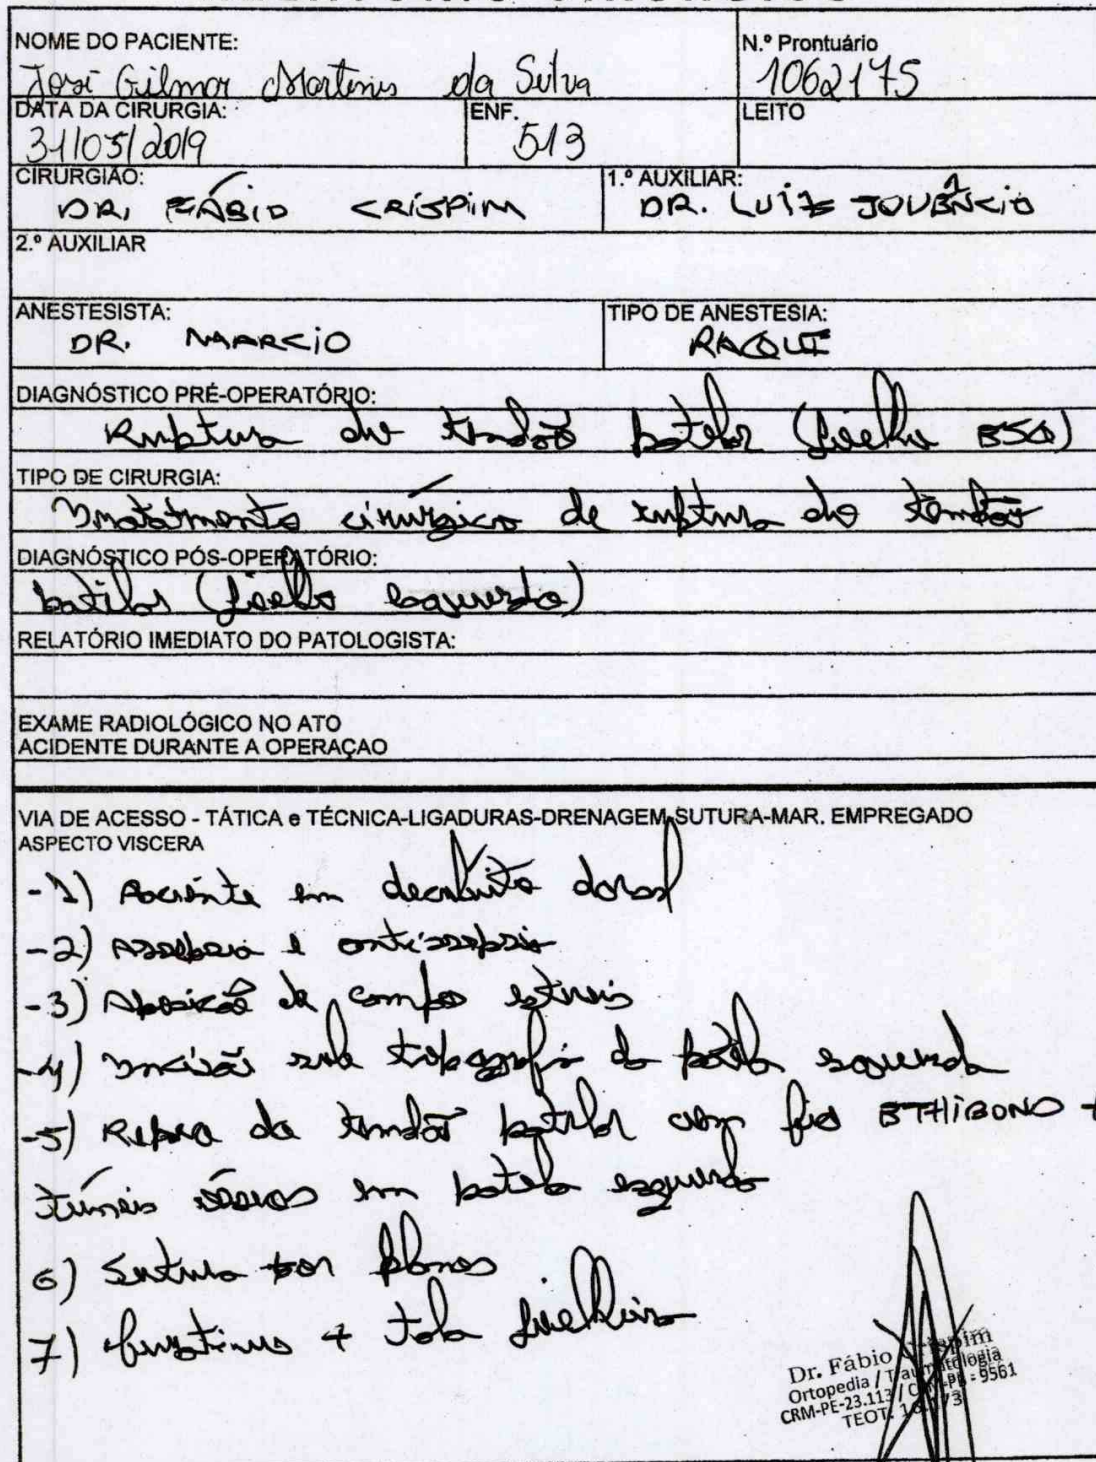 NOME DO PACIENTE:
N.º Prontuário
José Gilmar Martins da Silva
1062175
DATA DA CIRURGIA:
ENF.
LEITO
31/05/2019
513
CIRURGIÃO:
1.º AUXILIAR:
DR. FÁBIO CRISPIM
DR. LUIZ JOUVÊNCIO
2.º AUXILIAR
ANESTESISTA:
TIPO DE ANESTESIA:
DR. MARCIO
RAQUI
DIAGNÓSTICO PRÉ-OPERATÓRIO:
Ruptura do tendão patelar (joelho ESQ)
TIPO DE CIRURGIA:
Tratamento cirúrgico de ruptura do tendão
DIAGNÓSTICO PÓS-OPERATÓRIO:
patelar (joelho esquerdo)
RELATÓRIO IMEDIATO DO PATOLOGISTA:
EXAME RADIOLÓGICO NO ATO
ACIDENTE DURANTE A OPERAÇAO
VIA DE ACESSO - TÁTICA e TÉCNICA-LIGADURAS-DRENAGEM-SUTURA-MAR. EMPREGADO
ASPECTO VISCERA
-1) Paciente em decúbito dorsal
-2) Assepsia e antissepsia
-3) Aposição de campos estéreis
-4) Incisão sobre topografia da patela esquerda
-5) Reparo do tendão patelar com fio ETHIBOND +
túneis ósseos em patela esquerda
6) Sutura por planos
7) Curativos + tala
Dr. Fábio Crispim
Ortopedia / Traumatologia
CRM-PE-23.113 / CRM-PB - 9561
TEOT: